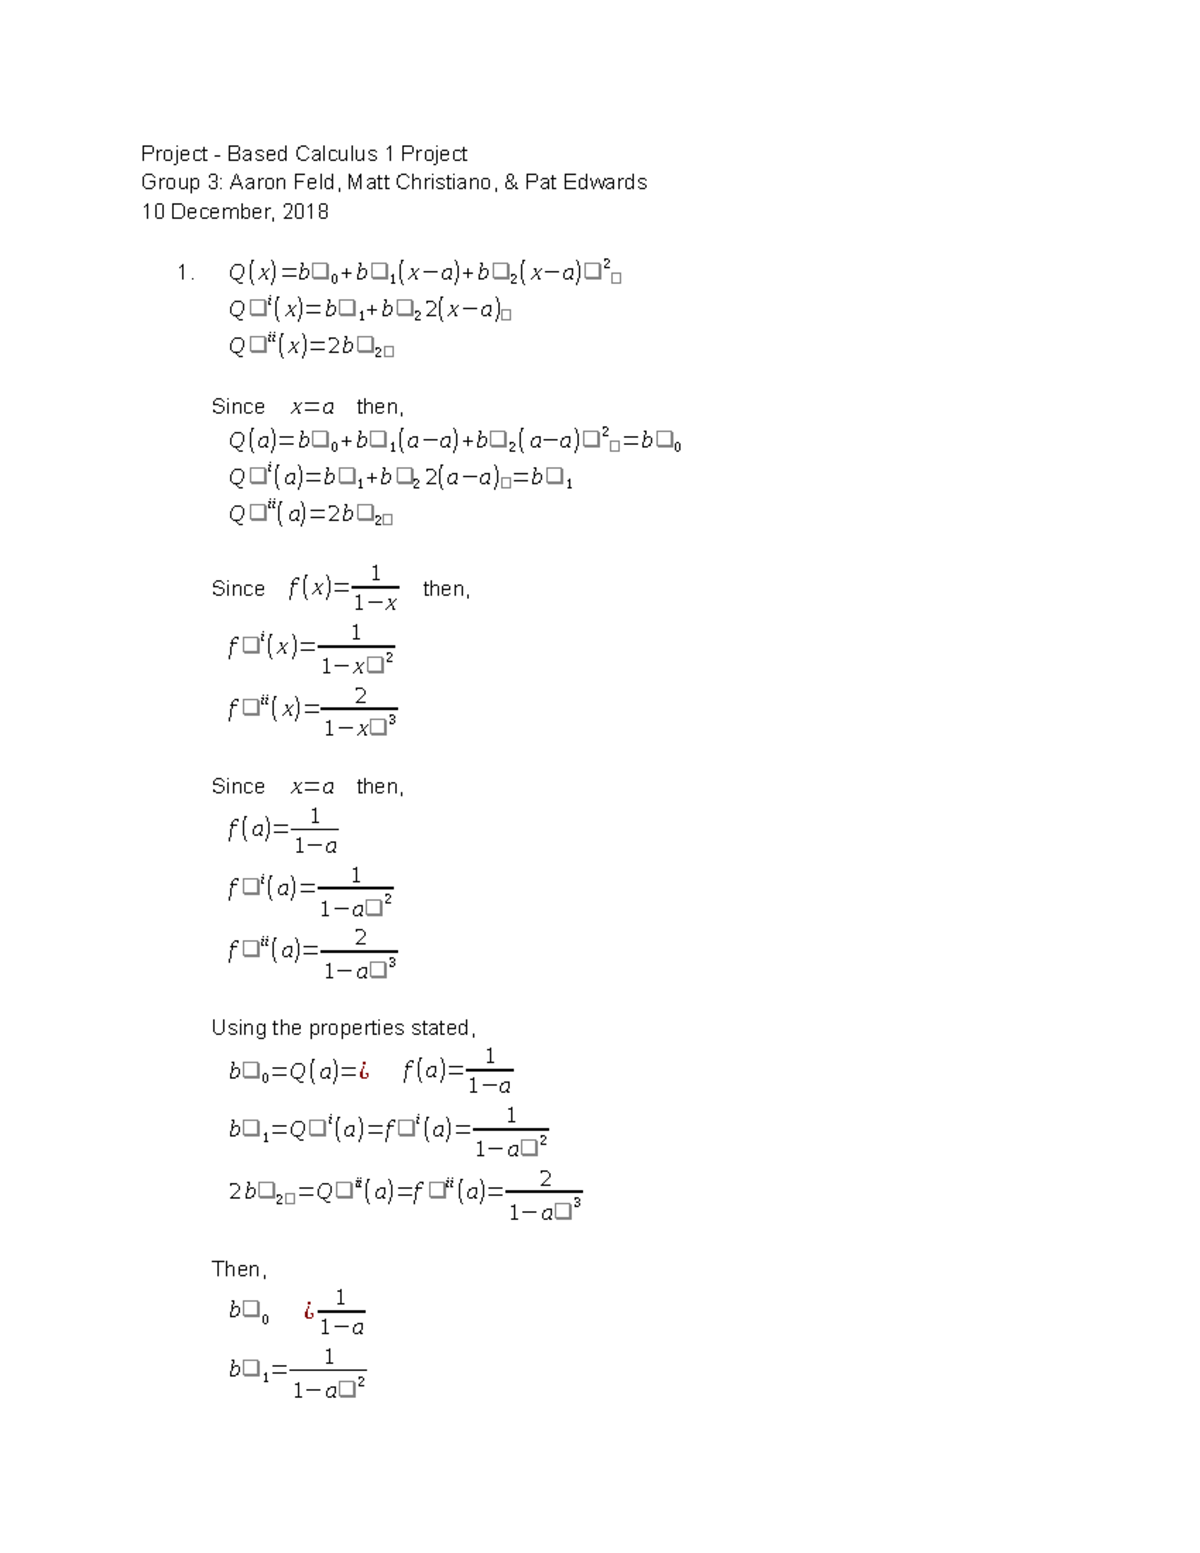 Project - Based Calculus 1 Project
Group 3: Aaron Feld, Matt Christiano, & Pat Edwards
10 December, 2018
1. Q(x)=b❑₀+b❑₁(x−a)+b❑₂(x−a)❑²□
Q❑ⁱ(x)=b❑₁+b❑₂2(x−a)□
Q❑ⁱⁱ(x)=2b❑₂□
Since x=a then,
Q(a)=b❑₀+b❑₁(a−a)+b❑₂(a−a)❑²□=b❑₀
Q❑ⁱ(a)=b❑₁+b❑₂2(a−a)□=b❑₁
Q❑ⁱⁱ(a)=2b❑₂□
Since f(x)=1/1−x then,
f❑ⁱ(x)=1/1−x❑²
f❑ⁱⁱ(x)=2/1−x❑³
Since x=a then,
f(a)=1/1−a
f❑ⁱ(a)=1/1−a❑²
f❑ⁱⁱ(a)=2/1−a❑³
Using the properties stated,
b❑₀=Q(a)=¿ f(a)=1/1−a
b❑₁=Q❑ⁱ(a)=f❑ⁱ(a)=1/1−a❑²
2b❑₂□=Q❑ⁱⁱ(a)=f❑ⁱⁱ(a)=2/1−a❑³
Then,
b❑₀ ¿1/1−a
b❑₁=1/1−a❑²